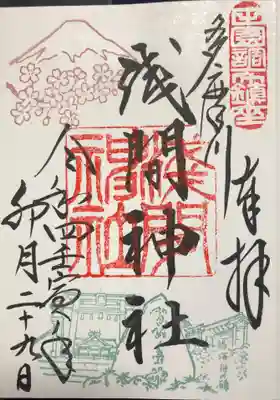 田園調布鎮座
奉拝
多摩川
浅間神社
淺間神社
令和四壬寅年
卯月二十九日